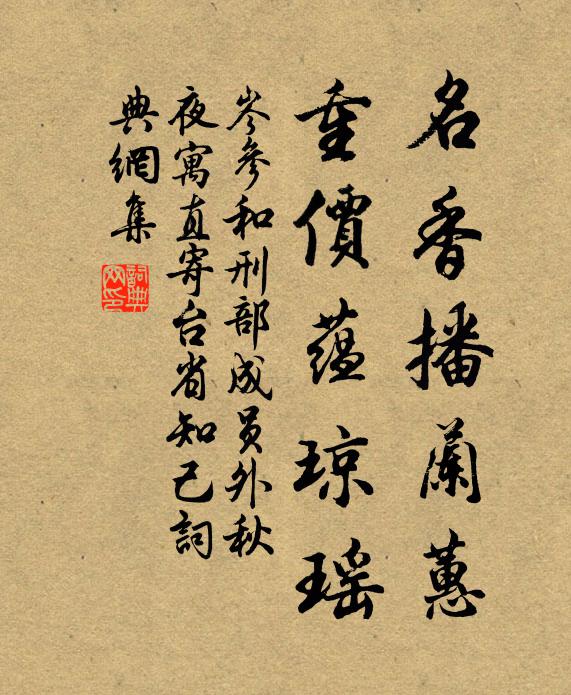 名香播蘭蕙
重價蘊琼瑶
岑參和刑部成员外秋
夜寓直寄台省知己詞
典網集
詞典网印